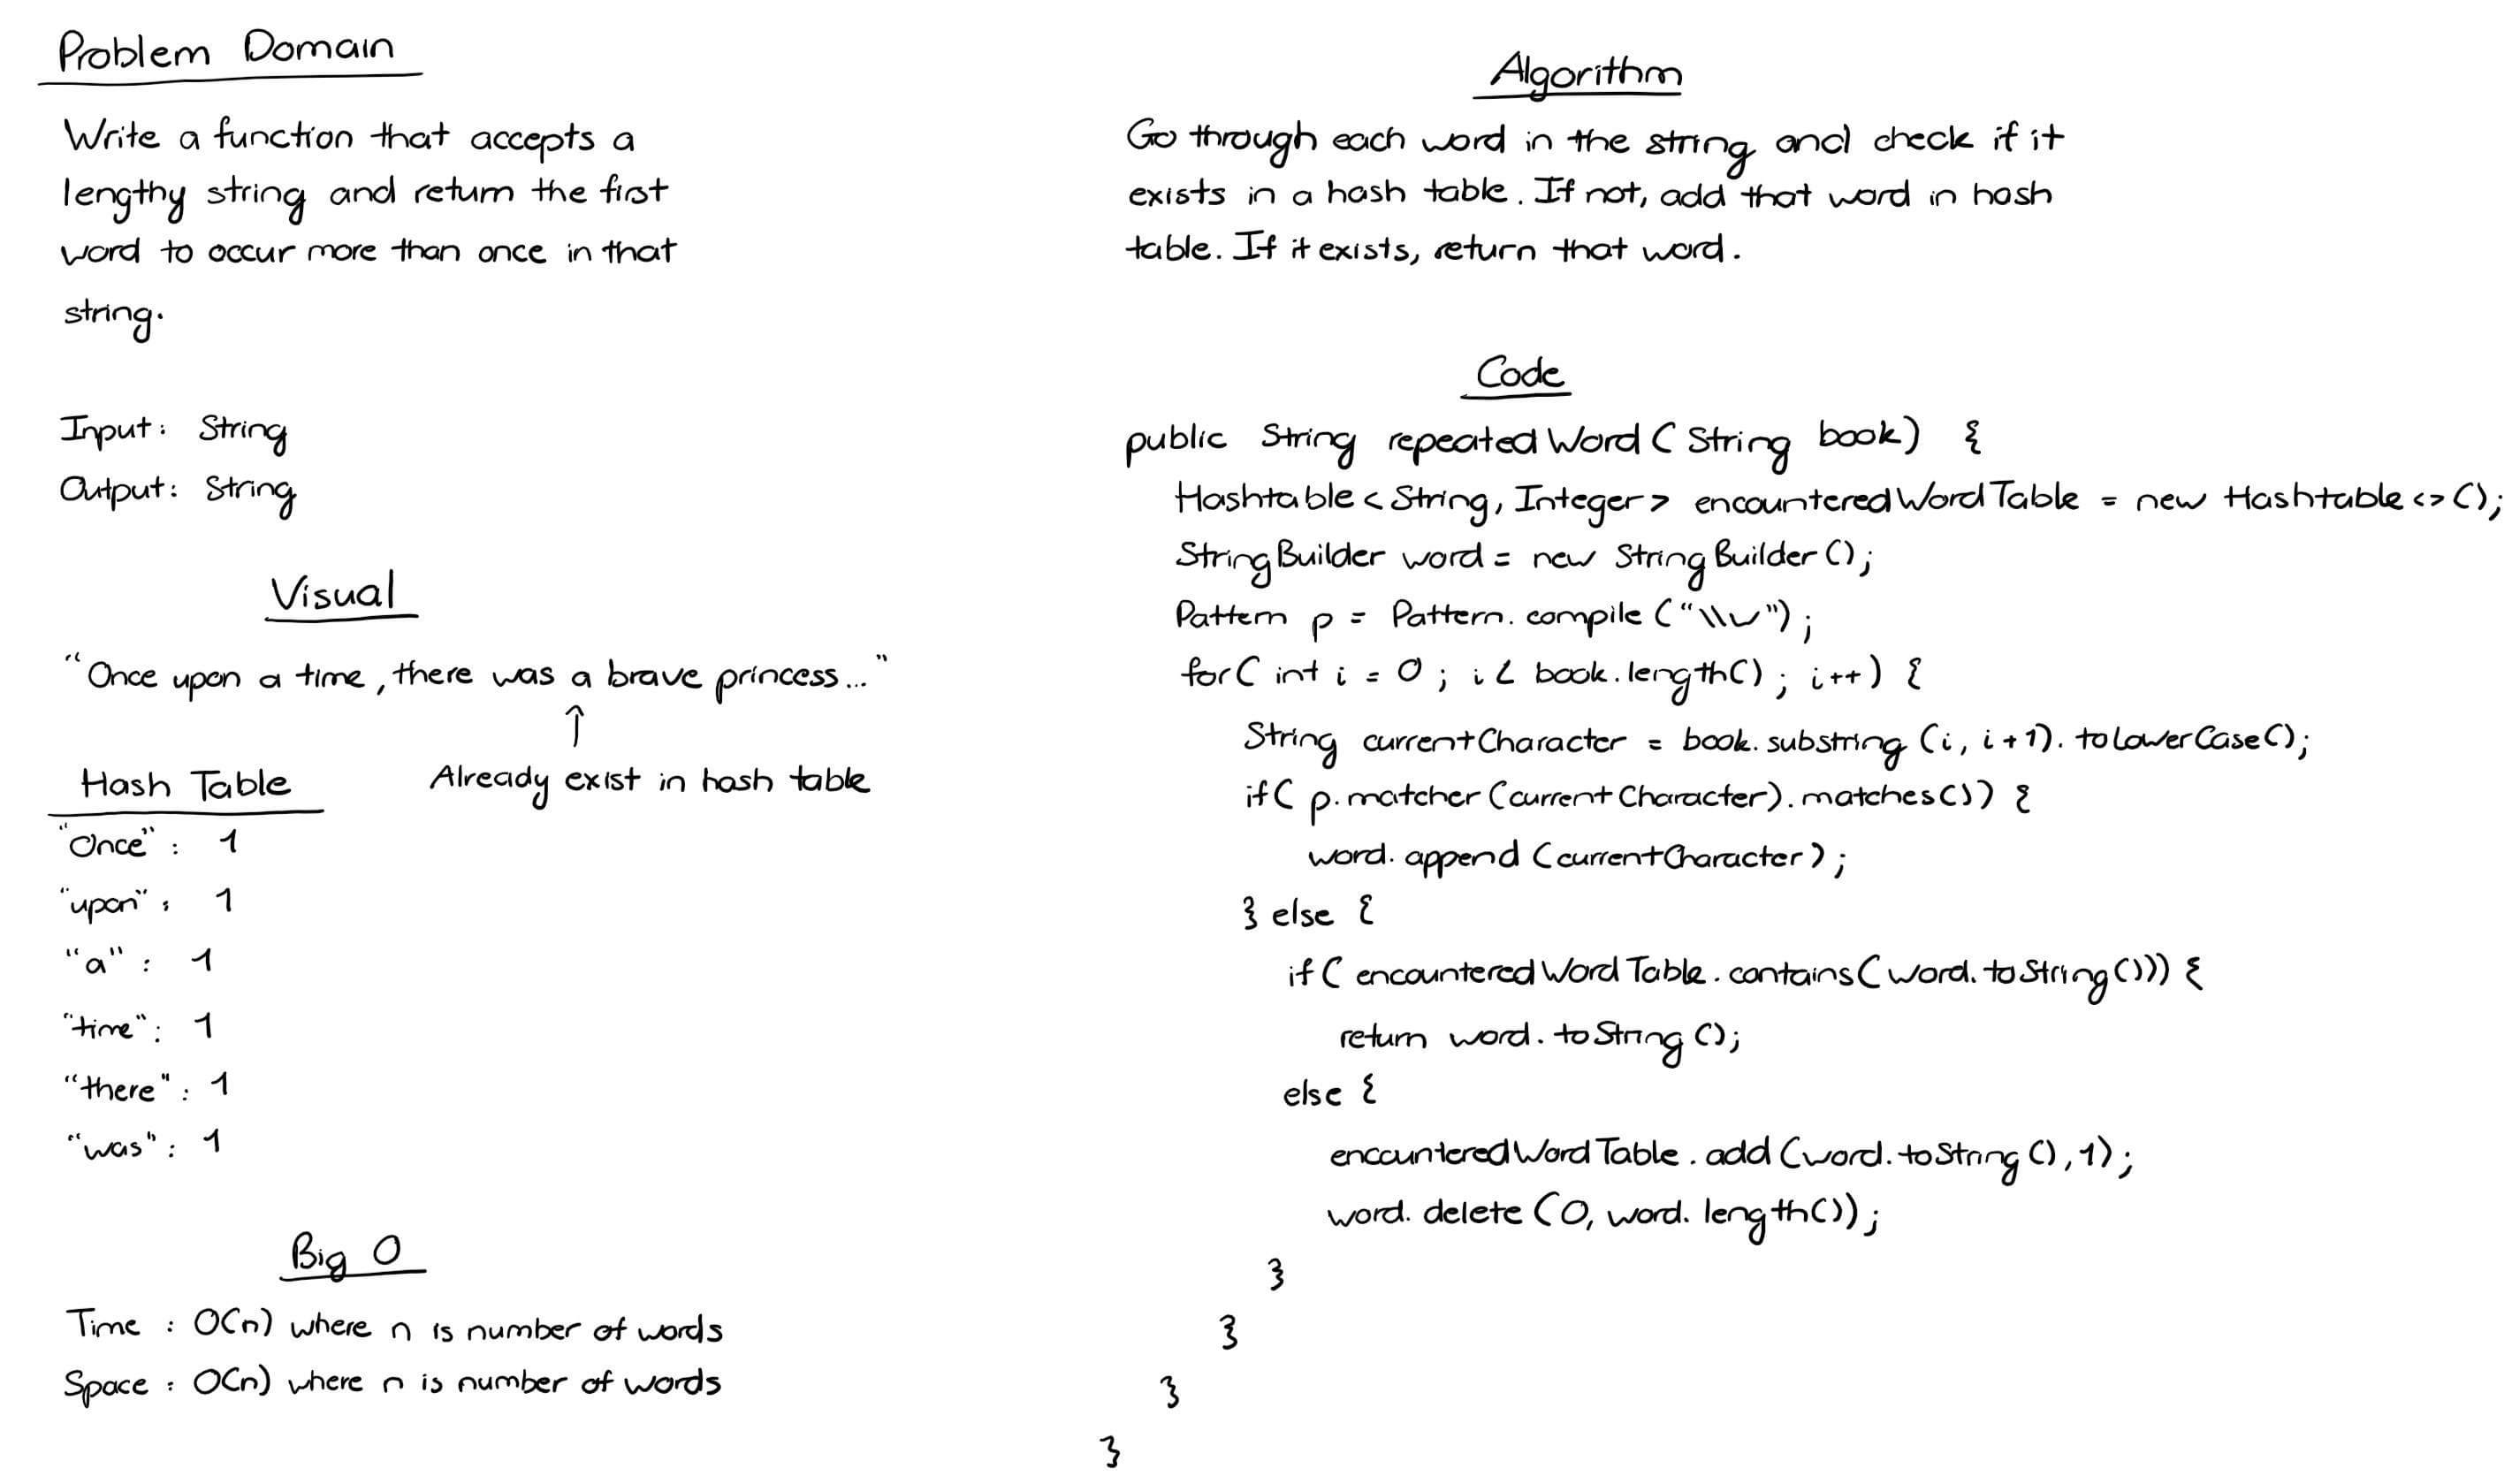 Problem Domain
Write a function that accepts a
lengthy string and return the first
word to occur more than once in that
string.
Input: String
Output: String
Visual
"Once upon a time, there was a brave princess..."
↑
Already exist in hash table
Hash Table
"Once": 1
"upon": 1
"a": 1
"time": 1
"there": 1
"was": 1
Big O
Time : O(n) where n is number of words
Space : O(n) where n is number of words
Algorithm
Go through each word in the string and check if it
exists in a hash table. If not, add that word in hash
table. If it exists, return that word.
Code
public String repeatedWord(String book) {
Hashtable<String, Integer> encounteredWordTable = new Hashtable<>();
StringBuilder word = new StringBuilder();
Pattern p = Pattern.compile("\\w");
for(int i = 0; i < book.length(); i++) {
String currentCharacter = book.substring(i, i+1).toLowerCase();
if(p.matcher(currentCharacter).matches()) {
word.append(currentCharacter);
} else {
if(encounteredWordTable.contains(word.toString())) {
return word.toString();
else {
encounteredWordTable.add(word.toString(), 1);
word.delete(0, word.length());
}
}
}
}